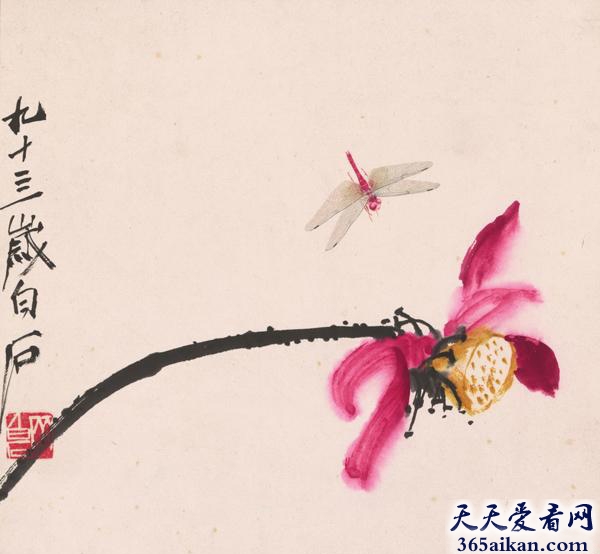 九十三岁白石
天天爱看网
365aikan.com